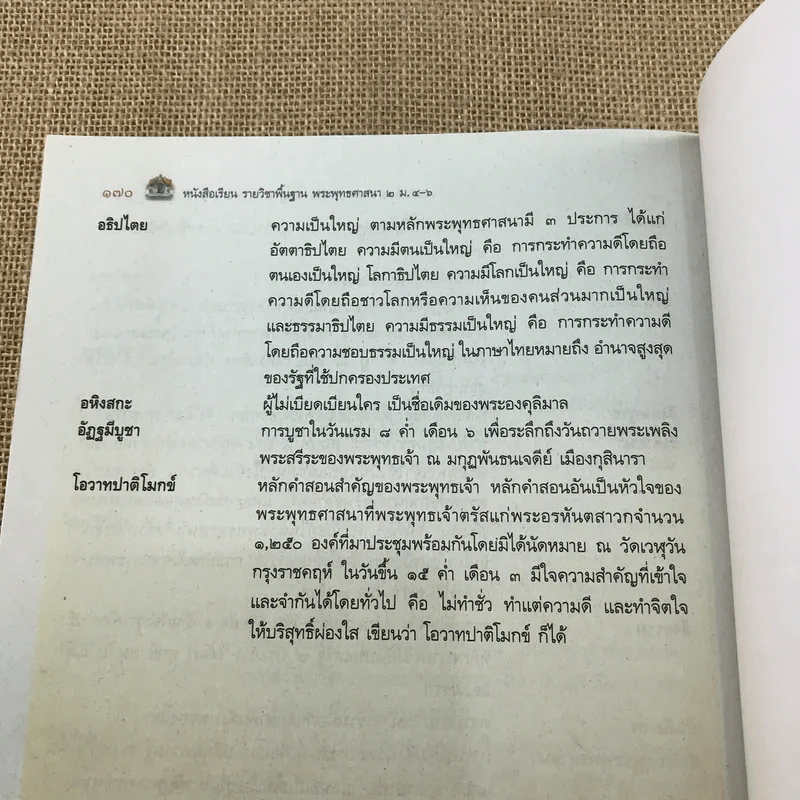 ๑๗๐ หนังสือเรียน รายวิชาพื้นฐาน พระพุทธศาสนา ๒ ม.๔-๖
อธิปไตย ความเป็นใหญ่ ตามหลักพระพุทธศาสนามี ๓ ประการ ได้แก่
อัตตาธิปไตย ความมีตนเป็นใหญ่ คือ การกระทำความดีโดยถือ
ตนเองเป็นใหญ่ โลกาธิปไตย ความมีโลกเป็นใหญ่ คือ การกระทำ
ความดีโดยถือชาวโลกหรือความเห็นของคนส่วนมากเป็นใหญ่
และธรรมาธิปไตย ความมีธรรมเป็นใหญ่ คือ การกระทำความดี
โดยถือความชอบธรรมเป็นใหญ่ ในภาษาไทยหมายถึง อำนาจสูงสุด
ของรัฐที่ใช้ปกครองประเทศ
อหิงสกะ ผู้ไม่เบียดเบียนใคร เป็นชื่อเดิมของพระองคุลิมาล
อัฏฐมีบูชา การบูชาในวันแรม ๘ ค่ำ เดือน ๖ เพื่อระลึกถึงวันถวายพระเพลิง
พระสรีระของพระพุทธเจ้า ณ มกุฏพันธนเจดีย์ เมืองกุสินารา
โอวาทปาติโมกข์ หลักคำสอนสำคัญของพระพุทธเจ้า หลักคำสอนอันเป็นหัวใจของ
พระพุทธศาสนาที่พระพุทธเจ้าตรัสแก่พระอรหันตสาวกจำนวน
๑,๒๕๐ องค์ที่มาประชุมพร้อมกันโดยมิได้นัดหมาย ณ วัดเวฬุวัน
กรุงราชคฤห์ ในวันขึ้น ๑๕ ค่ำ เดือน ๓ มีใจความสำคัญที่เข้าใจ
และจำกันได้โดยทั่วไป คือ ไม่ทำชั่ว ทำแต่ความดี และทำจิตใจ
ให้บริสุทธิ์ผ่องใส เขียนว่า โอวาทปาติโมกข์ ก็ได้